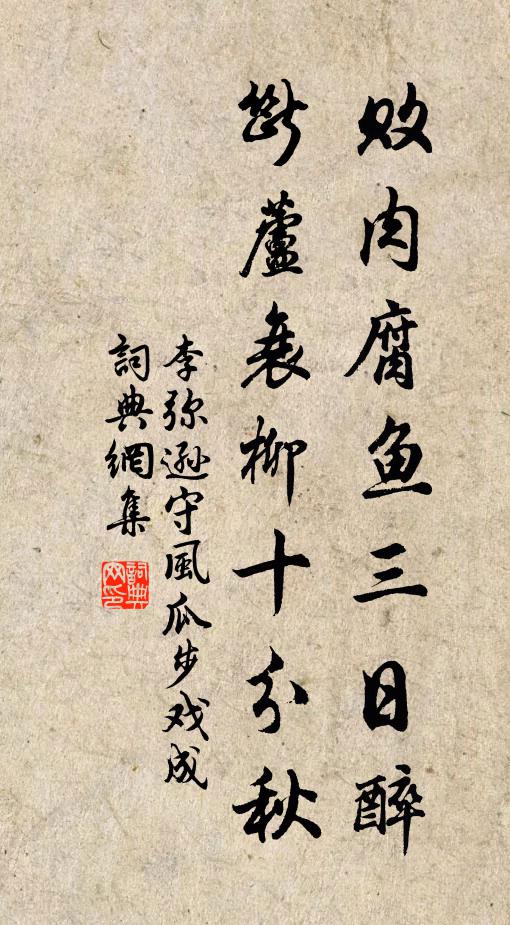 败肉腐鱼三日醉
断蘆衰柳十分秋
李弥逊守風瓜步戏成
詞典網集
詞典网印